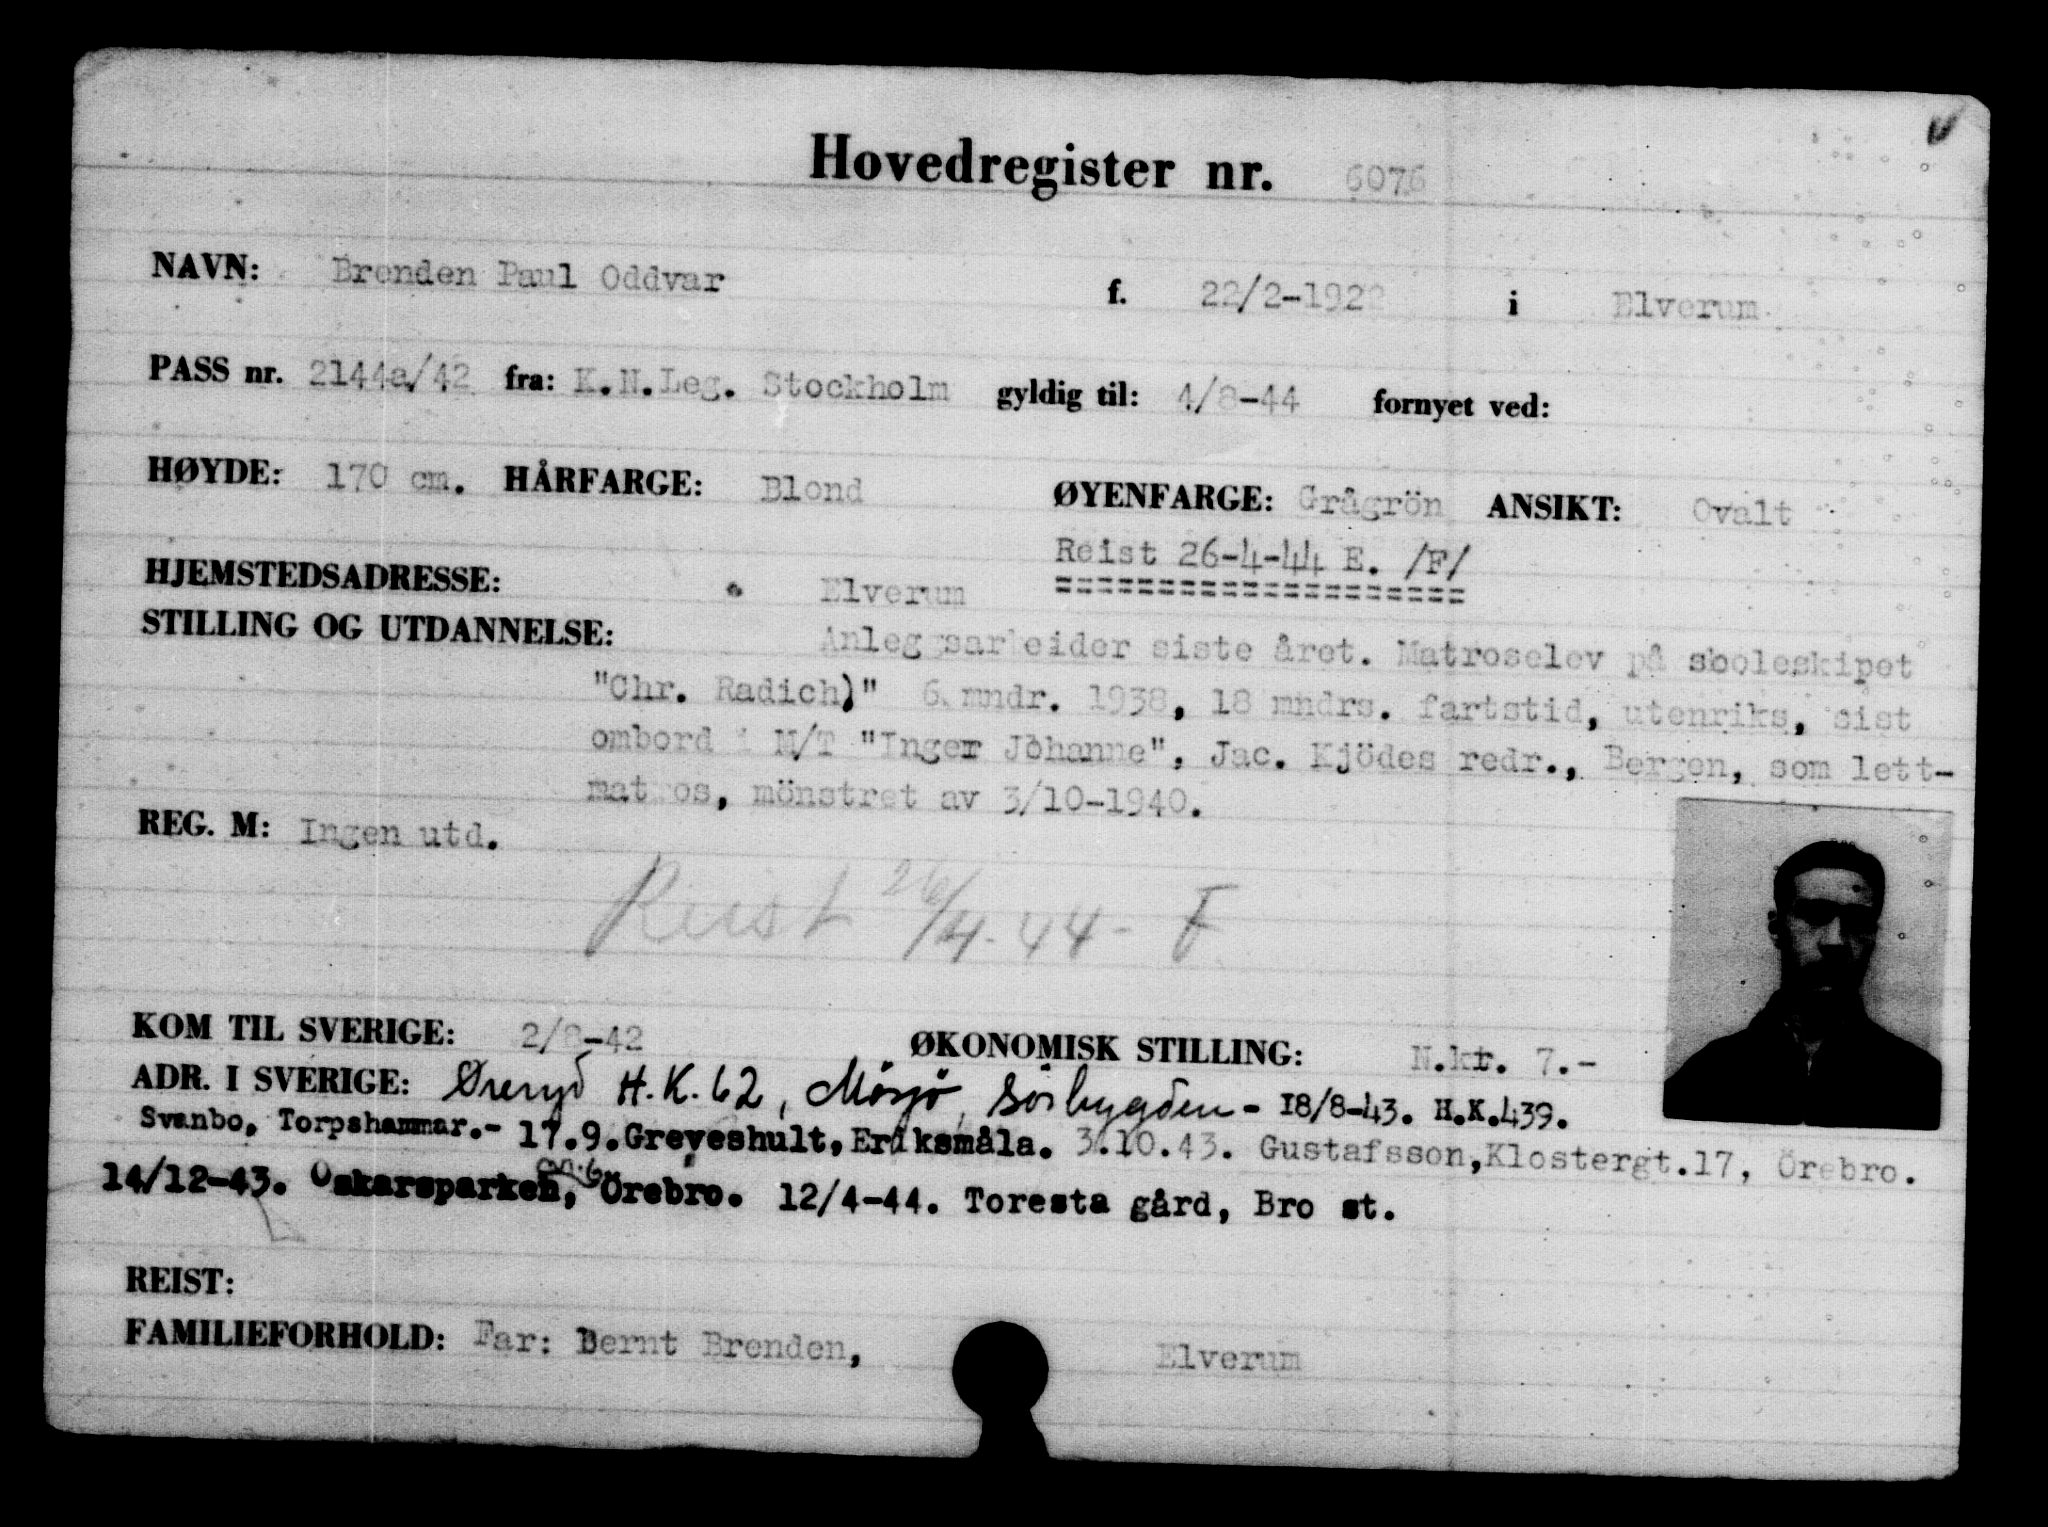 Hovedregister nr. 6076
NAVN: Brenden Paul Oddvar f. 22/2-1922 i Elverum.
PASS nr. 2144a/42 fra: K.N.Leg. Stockholm gyldig til: 4/8-44 fornyet ved:
HØYDE: 170 cm. HÅRFARGE: Blond ØYENFARGE: Grågrön ANSIKT: Ovalt
Reist 26-4-44 E. /F/
====================
HJEMSTEDSADRESSE: Elverum
STILLING OG UTDANNELSE: Anleggsarbeider siste året. Matroselev på skoleskipet
"Chr. Radich)" 6 mndr. 1938, 18 mndrs. fartstid, utenriks, sist
ombord i M/T "Inger Johanne", Jac. Kjödes redr., Bergen, som lett-
matros, mönstret av 3/10-1940.
REG. M: Ingen utd.
Reist 26/4-44- F
KOM TIL SVERIGE: 2/8-42 ØKONOMISK STILLING: N.kr. 7.-
ADR. I SVERIGE: Øreryd H.K.62, Mösjö, Sörbygden - 18/8-43. H.K.439.
Svanbo, Torpshammar.- 17.9.Greveshult, Eriksmåla. 3.10.43. Gustafsson,Klostergt.17, Örebro.
14/12-43. Oskarsparken, Örebro. 12/4-44. Toresta gård, Bro st.
REIST:
FAMILIEFORHOLD: Far: Bernt Brenden, Elverum